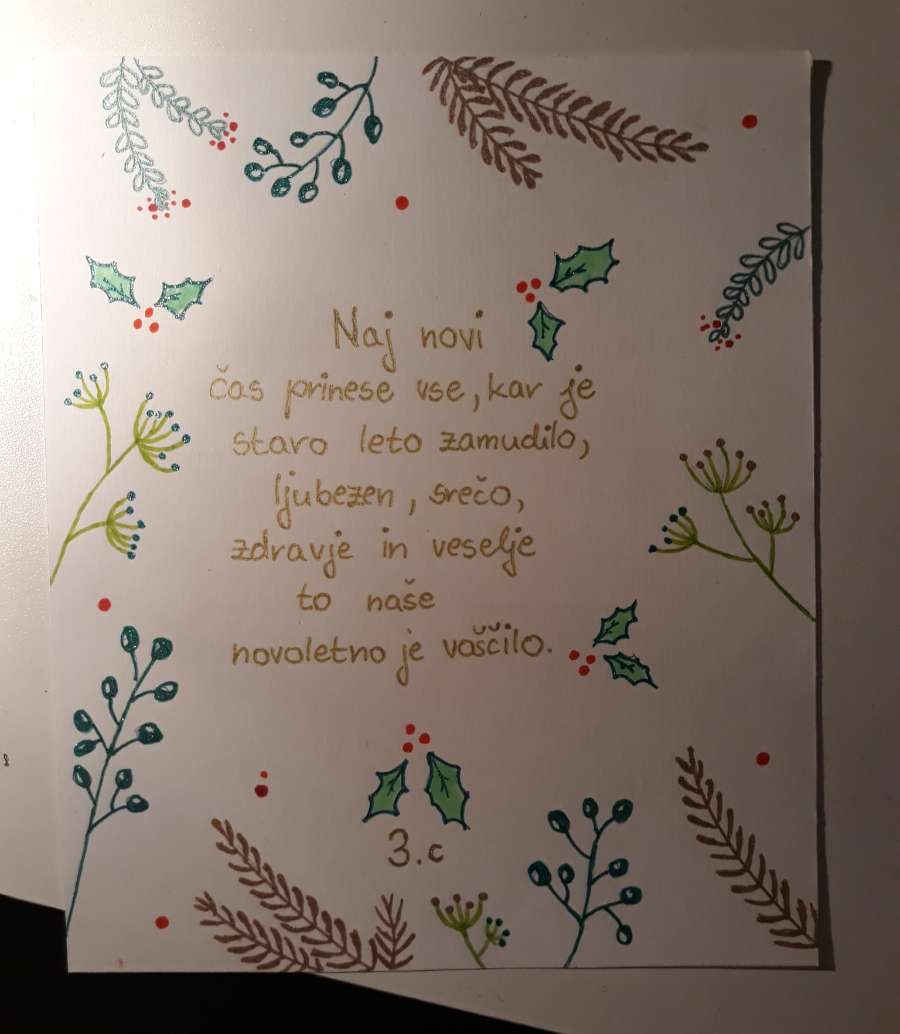 Naj novi
čas prinese vse, kar je
staro leto zamudilo,
ljubezen, srečo,
zdravje in veselje
to naše
novoletno je voščilo.
3.c